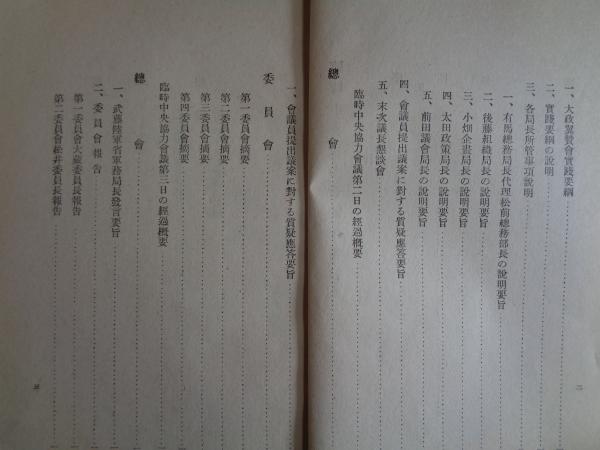 一、大政翼贊會實踐要綱
二、實踐要綱の說明
三、各局長所管事項說明
一、有馬總務局長代理松前總務部長の說明要旨
二、後藤組織局長の說明要旨
三、小畑企畫局長の說明要旨
四、太田政策局長の說明要旨
五、前田議會局長の說明要旨
四、會議員提出議案に對する質疑應答要旨
五、末次議長懇談會
臨時中央協力會議第二日の經過槪要
總會
一、會議員提出議案に對する質疑應答要旨
委員會
第一委員會摘要
第二委員會摘要
第三委員會摘要
第四委員會摘要
臨時中央協力會議第三日の經過槪要
總會
一、武藤陸軍省軍務局長發言要旨
二、委員會報告
第一委員會大藏委員長報告
第二委員會松井委員長報告